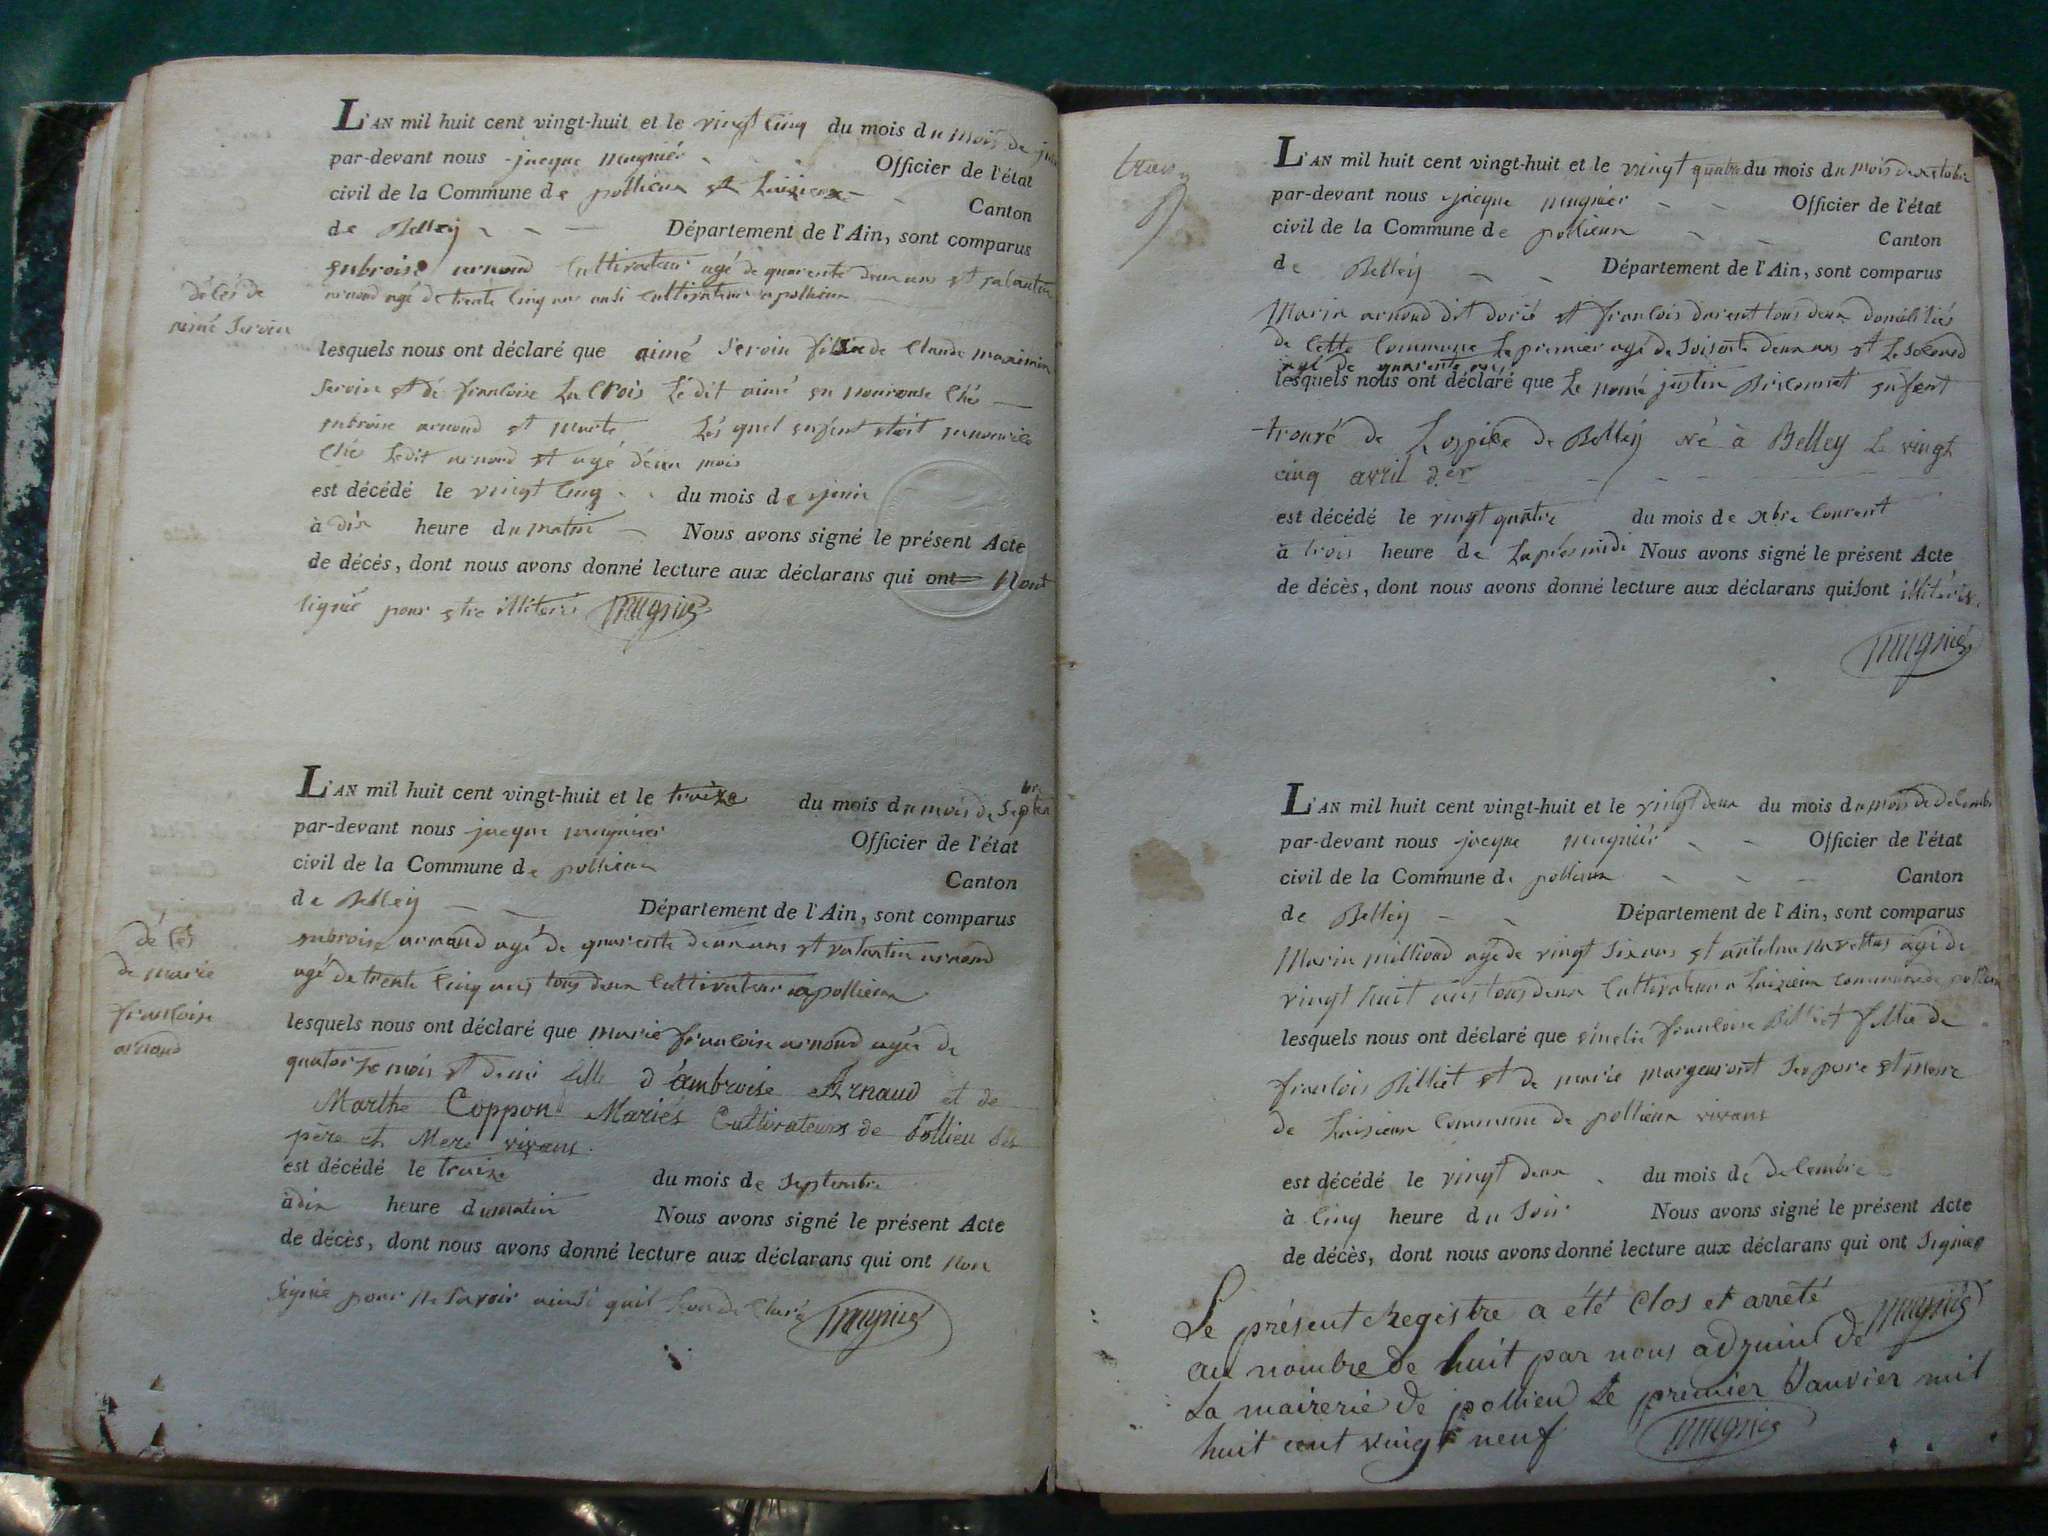 L'AN mil huit cent vingt-huit et le vingt cinq du mois du mois de
par-devant nous jacque mugnier Officier de l'état
civil de la Commune de pollieux et Luizieux Canton
de Belley Département de l'Ain, sont comparus
arnaud Cultivateur agé de quarente deux ans et
arnaud agé de trente cinq ans Cultivateur a pollieux
décés de
aimé Seroin
lesquels nous ont déclaré que aimé Seroin de Claude maximin
Seroin et de francoise La Crois Le dit aimé en nourouse chés
arnaud et marte quel enfent etoit
chés Ledit arnaud et agé deun mois
est décédé le vingt cinq du mois de juin
à dix heure du matin Nous avons signé le présent Acte
de décès, dont nous avons donné lecture aux déclarans qui ont Nont
signié pour etre mugnier
L'AN mil huit cent vingt-huit et le treize du mois du mois de Septembre
par-devant nous jacque mugnier Officier de l'état
civil de la Commune de pollieux Canton
de Belley Département de l'Ain, sont comparus
arnaud agé de quarente deux ans et valentin arnaud
agé de trente cinq ans tous deux Cultivateur a pollieux
décés
de marie
francoise
arnaud
lesquels nous ont déclaré que marie francoise arnaud agée de
quatorze mois et demi fille d'ambroise Arnaud et de
Marthe Coppon Mariés Cultivateurs de Pollieu
père et Mere vivans.
est décédé le treize du mois de Septembre
à dix heure du matin Nous avons signé le présent Acte
de décès, dont nous avons donné lecture aux déclarans qui ont non
signié pour ne savoir ainsi quil mugnier
L'AN mil huit cent vingt-huit et le vingt quatre du mois du mois de
par-devant nous jacque mugnier Officier de l'état
civil de la Commune de pollieux Canton
de Belley Département de l'Ain, sont comparus
Marin arnaud dit et francois tous deux
de Cette Commune Le premier agé de soisente deux ans et Le
agé de quarente
lesquels nous ont déclaré que Le nomé justin Brisonnet enfent
trouvé de Lospice de Belley né à Belley Le vingt
cinq avril der
est décédé le vingt quatre du mois de xbre Courent
à trois heure de Laprés midi Nous avons signé le présent Acte
de décès, dont nous avons donné lecture aux déclarans qui sont
mugnier
L'AN mil huit cent vingt-huit et le vingt deux du mois du mois de
par-devant nous jacque mugnier Officier de l'état
civil de la Commune de pollieux Canton
de Belley Département de l'Ain, sont comparus
Marin agé de vingt six ans et antelme agé de
vingt huit ans tous deux Cultivateur a Luizieux commune de
lesquels nous ont déclaré que francoise Billiet de
francois Billiet et de marie Ses pere et mere
de Luisieux Commune de pollieux vivans
est décédé le vingt deux du mois de décembre
à cinq heure du Soir Nous avons signé le présent Acte
de décès, dont nous avons donné lecture aux déclarans qui ont signié
Le présent Registre a été Clos et arrêté mugnier
au nombre de huit par nous adjoint de
La mairerie de pollieu Le premier Janvier mil
huit cent vingt neuf mugnier